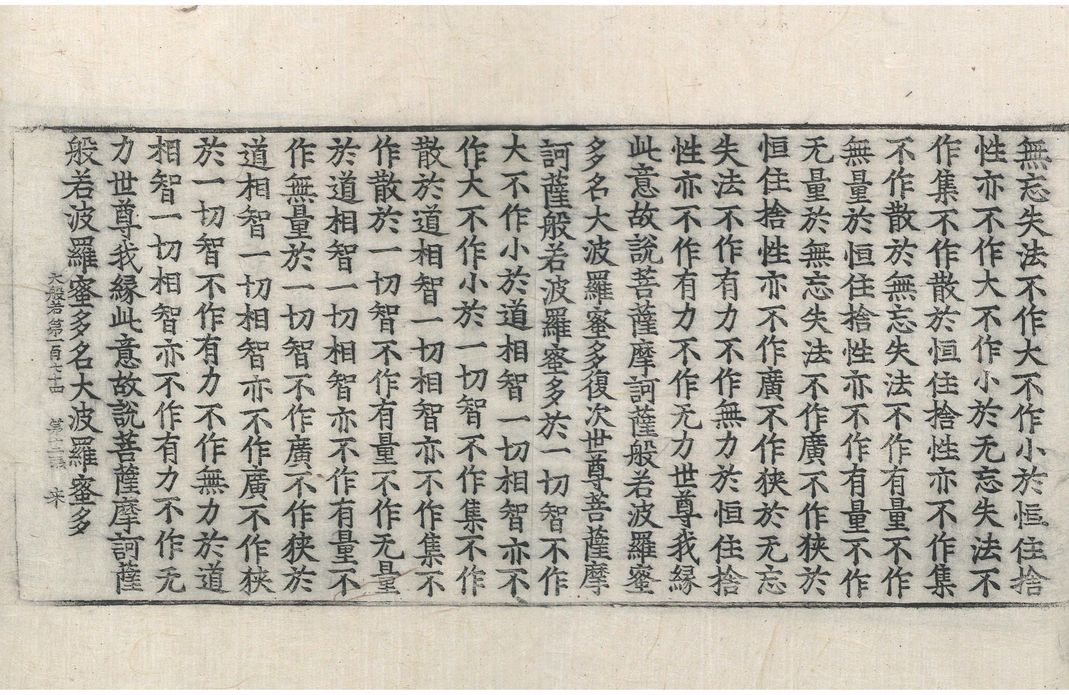 無忘失法不作大不作小於恒住捨
性亦不作大不作小於无忘失法不
作集不作散於恒住捨性亦不作集
不作散於無忘失法不作有量不作
無量於恒住捨性亦不作有量不作
无量於無忘失法不作廣不作狭於
恒住捨性亦不作廣不作狭於无忘
失法不作有力不作無力於恒住捨
性亦不作有力不作无力世尊我緣
此意故說菩薩摩訶薩般若波羅蜜
多名大波羅蜜多復次世尊菩薩摩
訶薩般若波羅蜜多於一切智不作
大不作小於道相智一切相智亦不
作大不作小於一切智不作集不作
散於道相智一切相智亦不作集不
作散於一切智不作有量不作无量
於道相智一切相智亦不作有量不
作無量於一切智不作廣不作狭於
道相智一切相智亦不作廣不作狭
於一切智不作有力不作無力於道
相智一切相智亦不作有力不作无
力世尊我緣此意故說菩薩摩訶薩
般若波羅蜜多名大波羅蜜多
大般若第一百七十四 第十二張 来